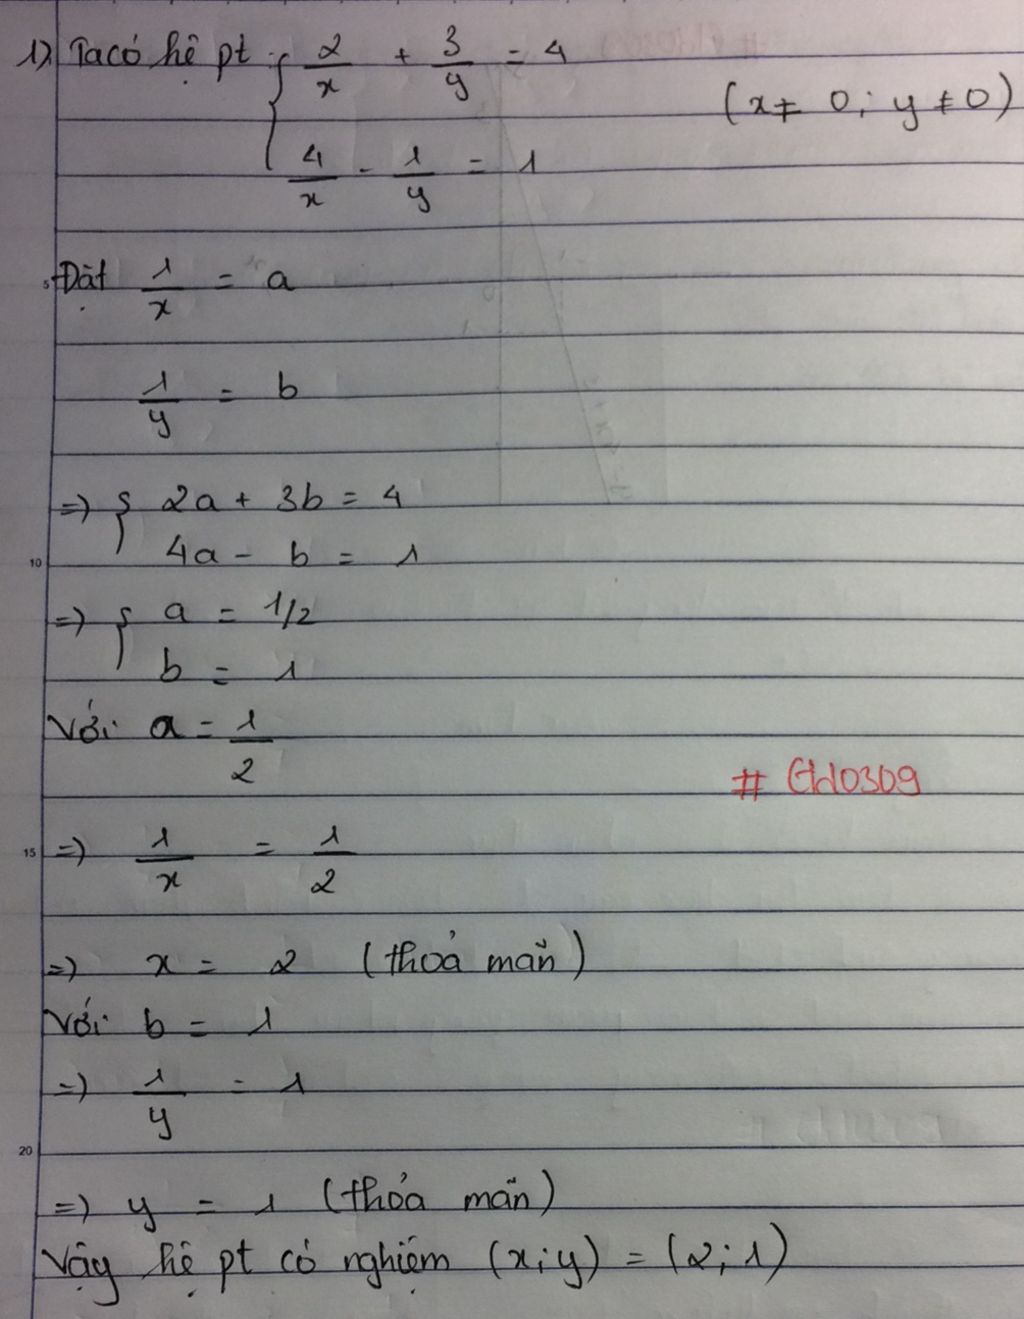 1) Ta có hệ pt { 2/x + 3/y = 4
(x ≠ 0; y ≠ 0)
4/x - 1/y = 1
5 Đặt 1/x = a
1/y = b
=> { 2a + 3b = 4
10 4a - b = 1
=> { a = 1/2
b = 1
Với a = 1/2
15 => 1/x = 1/2
=> x = 2 (thoả mãn)
Với b = 1
=> 1/y = 1
20
=> y = 1 (thỏa mãn)
Vậy hệ pt có nghiệm (x;y) = (2;1)